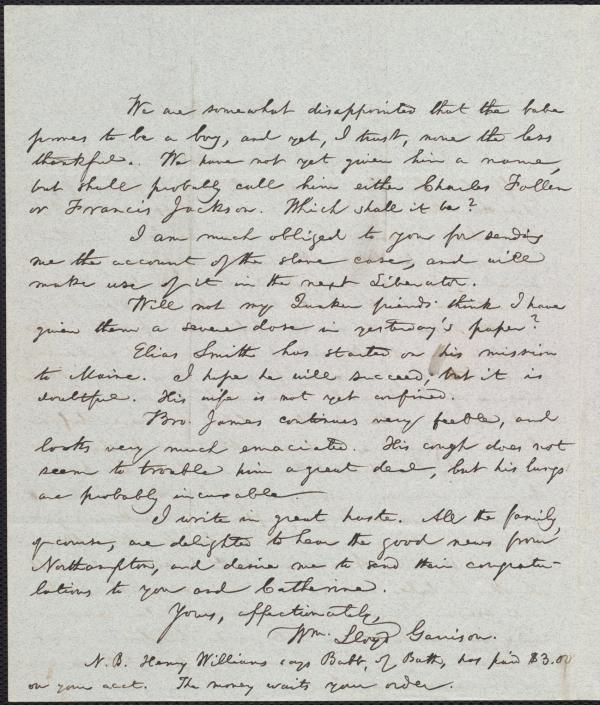 We are somewhat disappointed that the babe
proves to be a boy, and yet, I trust, none the less
thankful. We have not yet given him a name,
but shall probably call him either Charles Follen
or Francis Jackson. Which shall it be?
I am much obliged to you for sending
me the account of the slave case, and will
make use of it in the next Liberator.
Will not my Quaker friends think I have
given them a severe dose in yesterday's paper?
Elias Smith has started on his mission
to Maine. I hope he will succeed, but it is
doubtful. His wife is not yet confined.
Bro. James continues very feeble, and
looks very much emaciated. His cough does not
seem to trouble him a great deal, but his lungs
are probably incurable.
I write in great haste. All the family,
of course, are delighted to hear the good news from
Northampton, and desire me to send their congratu-
lations to you and Catherine.
Yours, affectionately,
Wm. Lloyd Garrison.
N. B. Henry Williams says Babb, of Bath, has paid $3.00
on your acct. The money waits your order.